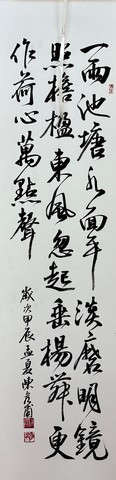 一雨池塘水面平淡磨明鏡
照檐楹東風忽起垂楊舞更
作荷心萬點聲
歲次甲辰孟夏陳彥